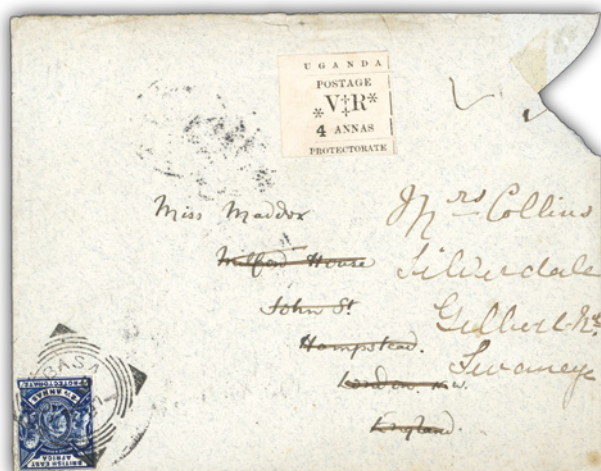 UGANDA
POSTAGE
*V‡R*
4 ANNAS
PROTECTORATE
Miss Maddox
Milford House
John St
Hampstead.
London. N.W.
England.
Mrs Collins
Silverdale
Gilbert Rd
Swanage
BASA
BRITISH EAST
AFRICA
PROTECTORATE
2½ ANNAS